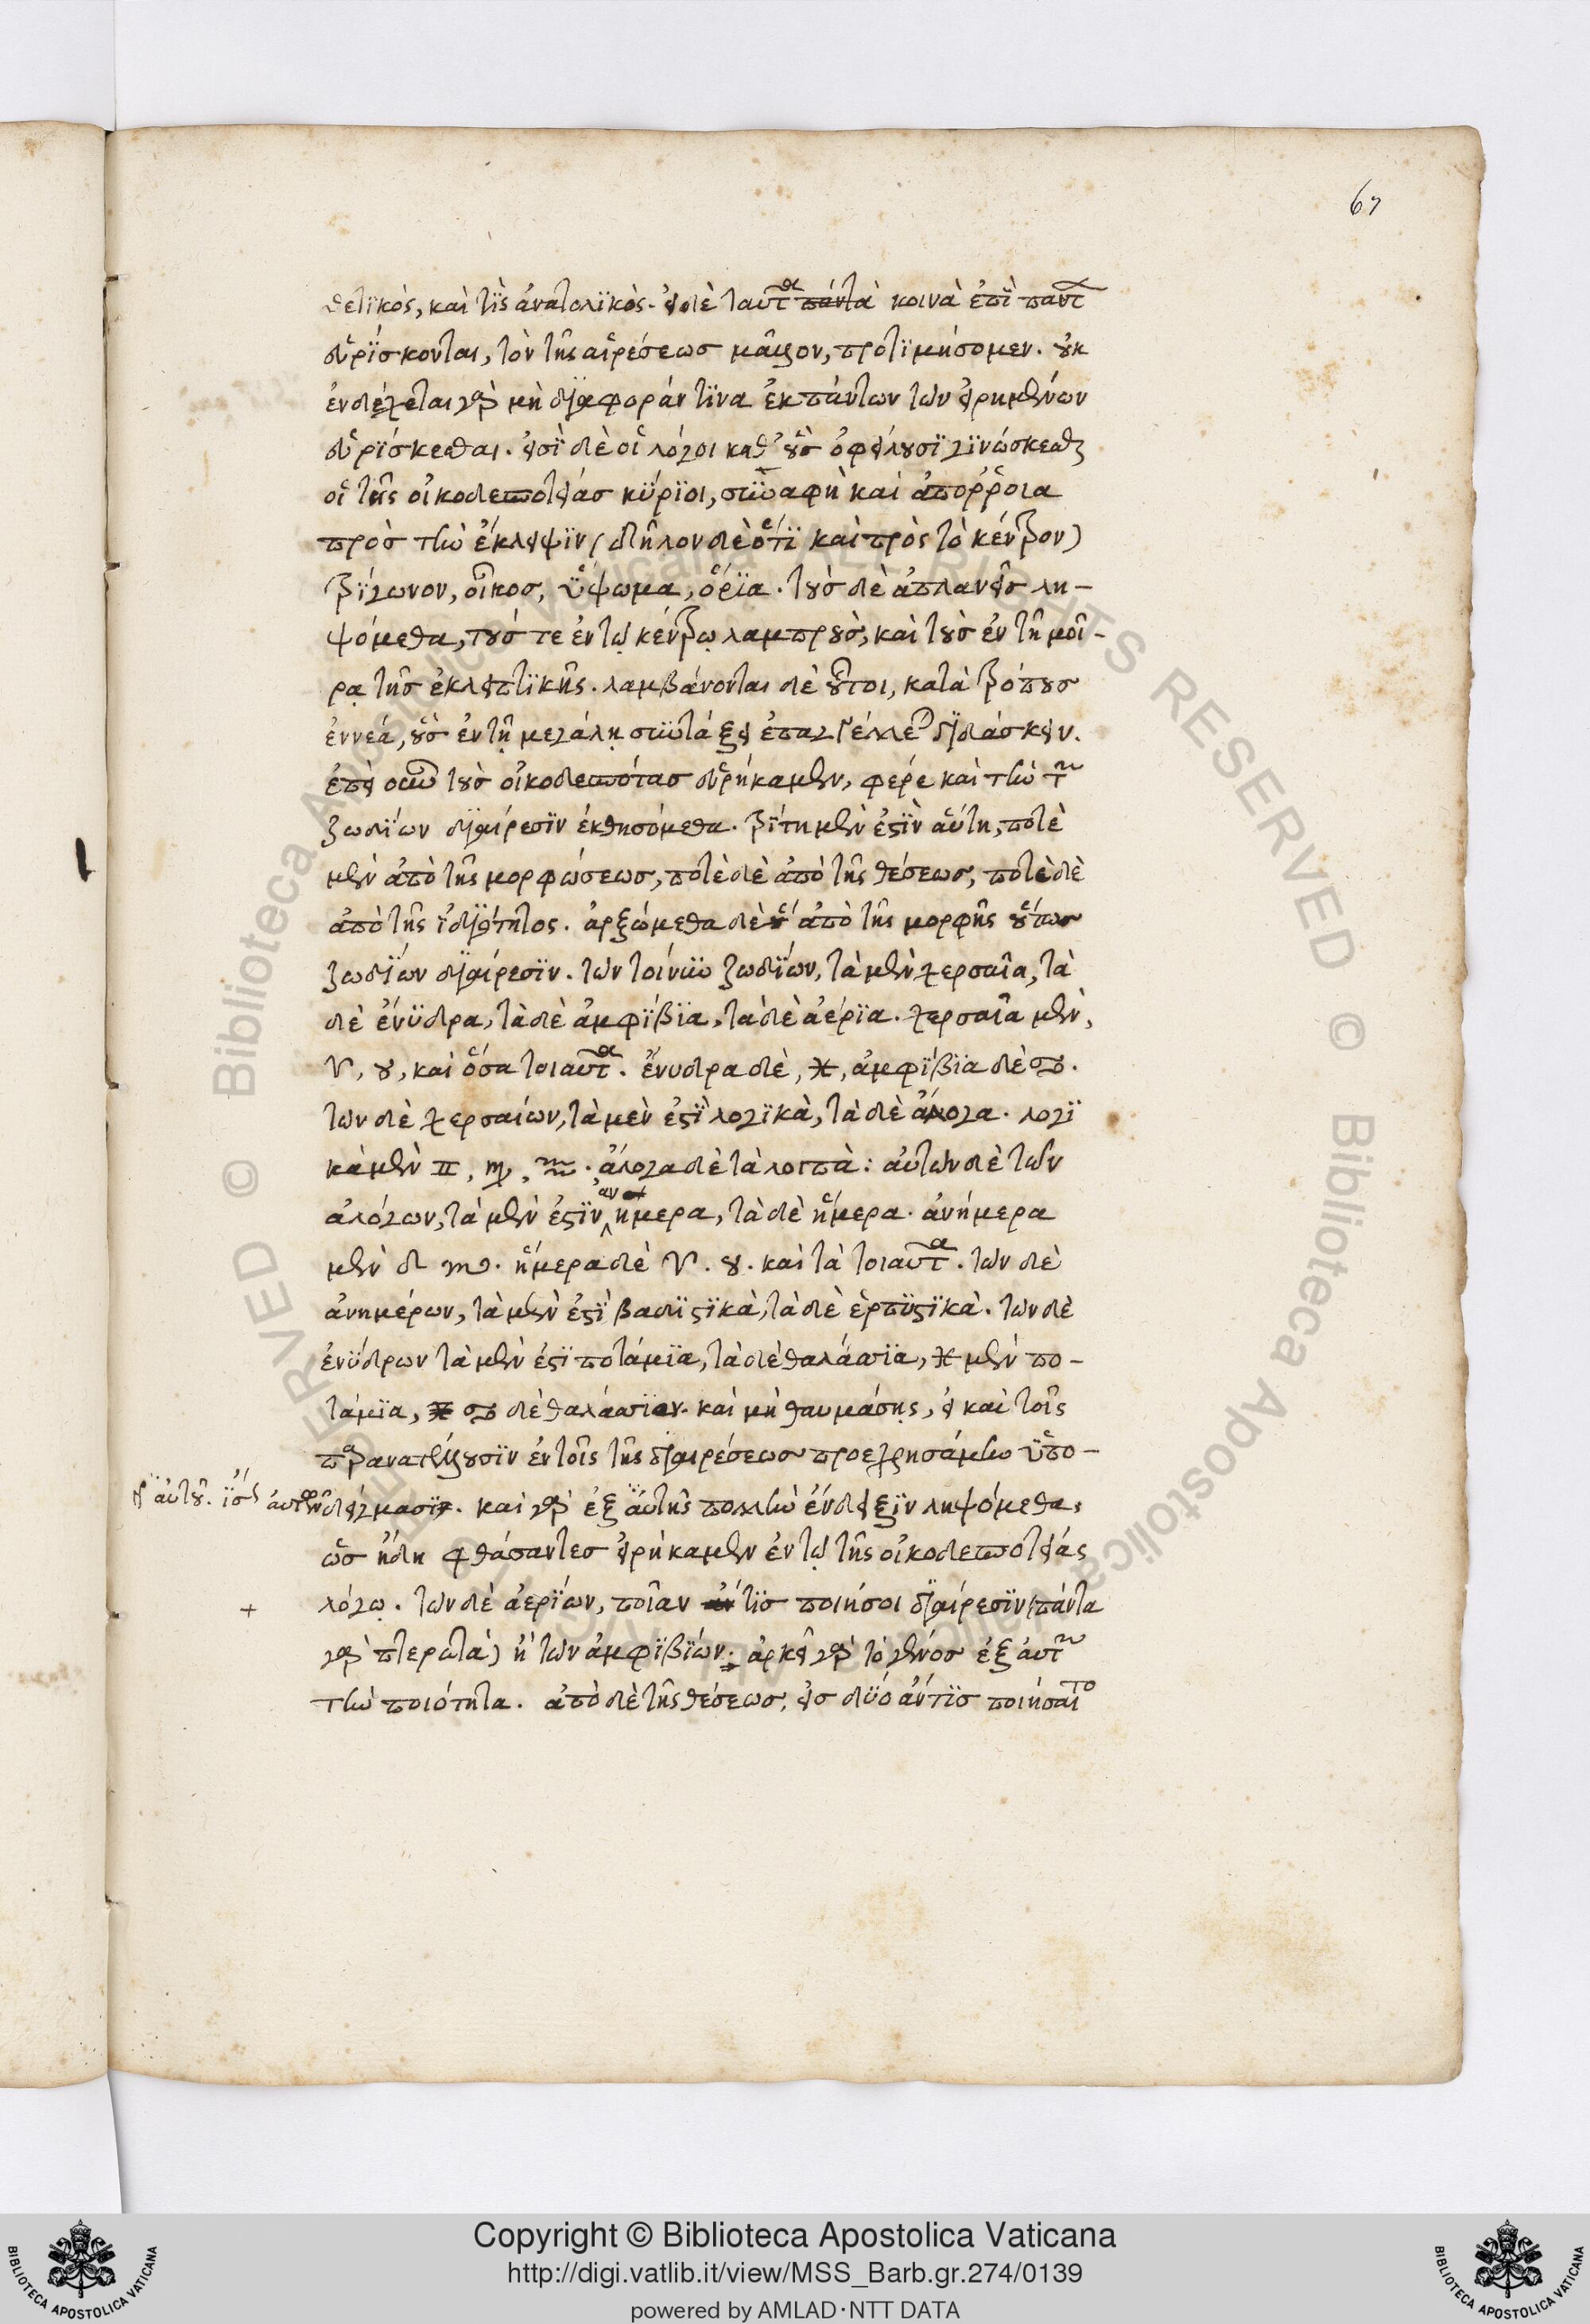 67
θετικὸς, καὶ τὶς ἀνατολικὸς. εἰ δὲ ταῦτα πάντα κοινὰ ἐπὶ πάντων
εὑρίσκονται, τὸν τῆς αἱρέσεως μᾶλλον, προτιμήσομεν. οὐκ
ἐνδέχεται γὰρ μὴ διαφοράν τινα ἐκ πάντων τῶν εἰρημένων
εὑρίσκεσθαι. εἰσὶ δὲ οἱ λόγοι καθ' οὓς ὀφείλουσι γινώσκεσθαι
οἱ τῆς οἰκοδεσποτείας κύριοι, συναφὴ καὶ ἀπόρροια
πρὸς τὴν ἔκλειψιν (δῆλον δὲ ὅτι καὶ πρὸς τὸ κέντρον)
τρίγωνον, οἶκος, ὕψωμα, ὅρια. τοὺς δὲ ἀπλανεῖς λη-
ψόμεθα, τούς τε ἐν τῷ κέντρῳ λαμπροὺς, καὶ τοὺς ἐν τῇ μοί-
ρᾳ τῆς ἐκλειπτικῆς. λαμβάνονται δὲ οὗτοι, κατὰ τρόπους
ἐννέα, οὓς ἐν τῇ μεγάλῃ συντάξει ἐπαγγέλλεται διδάσκειν.
ἐπεὶ οὖν τοὺς οἰκοδεσπότας εὑρήκαμεν, φέρε καὶ τὴν τῶν
ζωδίων διαίρεσιν ἐκθησόμεθα. τρίτη μὲν ἐστὶν αὕτη, ποτὲ
μὲν ἀπὸ τῆς μορφώσεως, ποτὲ δὲ ἀπὸ τῆς θέσεως, ποτὲ δὲ
ἀπὸ τῆς ἰδιότητος. ἀρξώμεθα δὲ ἀπὸ τῆς μορφῆς οὕτως
ζωδίων διαίρεσιν. τῶν τοίνυν ζωδίων, τὰ μὲν χερσαῖα, τὰ
δὲ ἔνυδρα, τὰ δὲ ἀμφίβια, τὰ δὲ ἀέρια. χερσαῖα μὲν,
♈, ♉, καὶ ὅσα τοιαῦτα. ἔνυδρα δὲ, ♓, ἀμφίβια δὲ ♋.
τῶν δὲ χερσαίων, τὰ μὲν ἐστὶ λογικὰ, τὰ δὲ ἄλογα. λογι
κὰ μὲν ♊, ♍, ♒. ἄλογα δὲ τὰ λοιπά: αὐτῶν δὲ τῶν
ἀλόγων, τὰ μὲν ἐστὶν ἀνήμερα, τὰ δὲ ἥμερα. ἀνήμερα
μὲν ♌ ♏. ἥμερα δὲ ♈. ♉. καὶ τὰ τοιαῦτα. τῶν δὲ
ἀνημέρων, τὰ μὲν ἐστὶ βαδιστικὰ, τὰ δὲ ἑρπυστικὰ. τῶν δὲ
ἐνύδρων τὰ μὲν ἐστὶ ποτάμια, τὰ δὲ θαλάσσια, ♓ μὲν πο-
τάμια, ♋ δὲ θαλάσσιον. καὶ μὴ θαυμάσῃς, εἰ καὶ τοῖς
παρανατέλλουσιν ἐν τοῖς τῆς διαιρέσεως προεχρησάμην ὑπο-
δείγμασι. καὶ γὰρ ἐξ αὐτῆς πολλὴν ἔνδειξιν ληψόμεθα,
δι' αὐτοῦ. ἴσως
ὡς ἤδη φθάσαντες εἰρήκαμεν ἐν τῷ τῆς οἰκοδεσποτείας
λόγῳ. τῶν δὲ ἀερίων, ποῖαν τὶς ποιήσοι διαίρεσιν (πάντα
γὰρ πτερωτὰ) ἢ τῶν ἀμφιβίων; ἀρκεῖ γὰρ τὸ γένος ἐξ αὐτῶν
τὴν ποιότητα. ἀπὸ δὲ τῆς θέσεως, εἰς δύο ἄν τις ποιήσαιτο
Copyright © Biblioteca Apostolica Vaticana
http://digi.vatlib.it/view/MSS_Barb.gr.274/0139
powered by AMLAD·NTT DATA
BIBLIOTECA APOSTOLICA VATICANA
BIBLIOTECA APOSTOLICA VATICANA